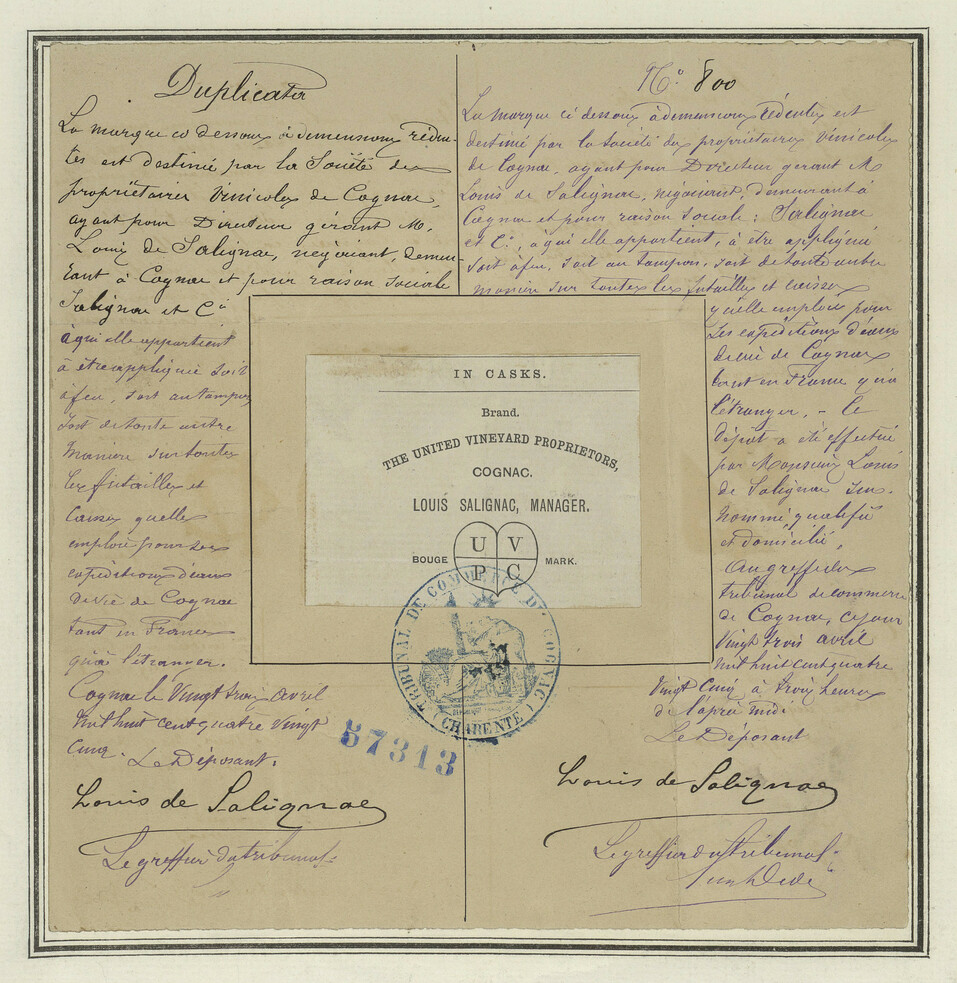 Duplicata
La marque ci dessous à dimensions rédui-
tes est destiné par la Société des
propriétaires Vinicoles de Cognac,
ayant pour Directeur gérant M.
Louis de Salignac, négociant, demeu-
rant à Cognac et pour raison sociale
Salignac et Cie
à qui elle appartient
à être appliquée soit
à feu, soit au tampon,
soit de toute autre
manière sur toutes
les futailles et
caisses quelles
emploie pour ses
expéditions d'eaux
de vie de Cognac
tant en France
qu'à l'étranger.
Cognac le Vingt trois avril
mil huit cent quatre vingt
cinq. Le Déposant.
Louis de Salignac
Le greffier du tribunal
No 800
La marque ci dessous à dimensions réduites est
destiné par la société des propriétaires Vinicoles
de Cognac, ayant pour Directeur gerant M
Louis de Salignac, négociant, demeurant à
Cognac et pour raison sociale : Salignac
et Cie, à qui elle appartient, à être appliqué
soit à feu, soit au tampon, soit de toute autre
manière sur toutes les futailles et caisses
qu'elle emploie pour
ses expéditions d'eaux
de vie de Cognac
tant en France qu'à
l'étranger. - Ce
dépôt a été effectué
par Monsieur Louis
de Salignac sus.
nommé, qualifié
et domicilié,
au greffe du
tribunal de commerce
de Cognac, ce jour
Vingt trois avril
mil huit cent quatre
Vingt Cinq à trois heures
de l'après midi
Le Déposant
Louis de Salignac
Le greffier du tribunal
IN CASKS.
Brand.
THE UNITED VINEYARD PROPRIETORS,
COGNAC.
LOUIS SALIGNAC, MANAGER.
BOUGE U V P C MARK.
TRIBUNAL DE COMMERCE DE COGNAC
(CHARENTE)
57313